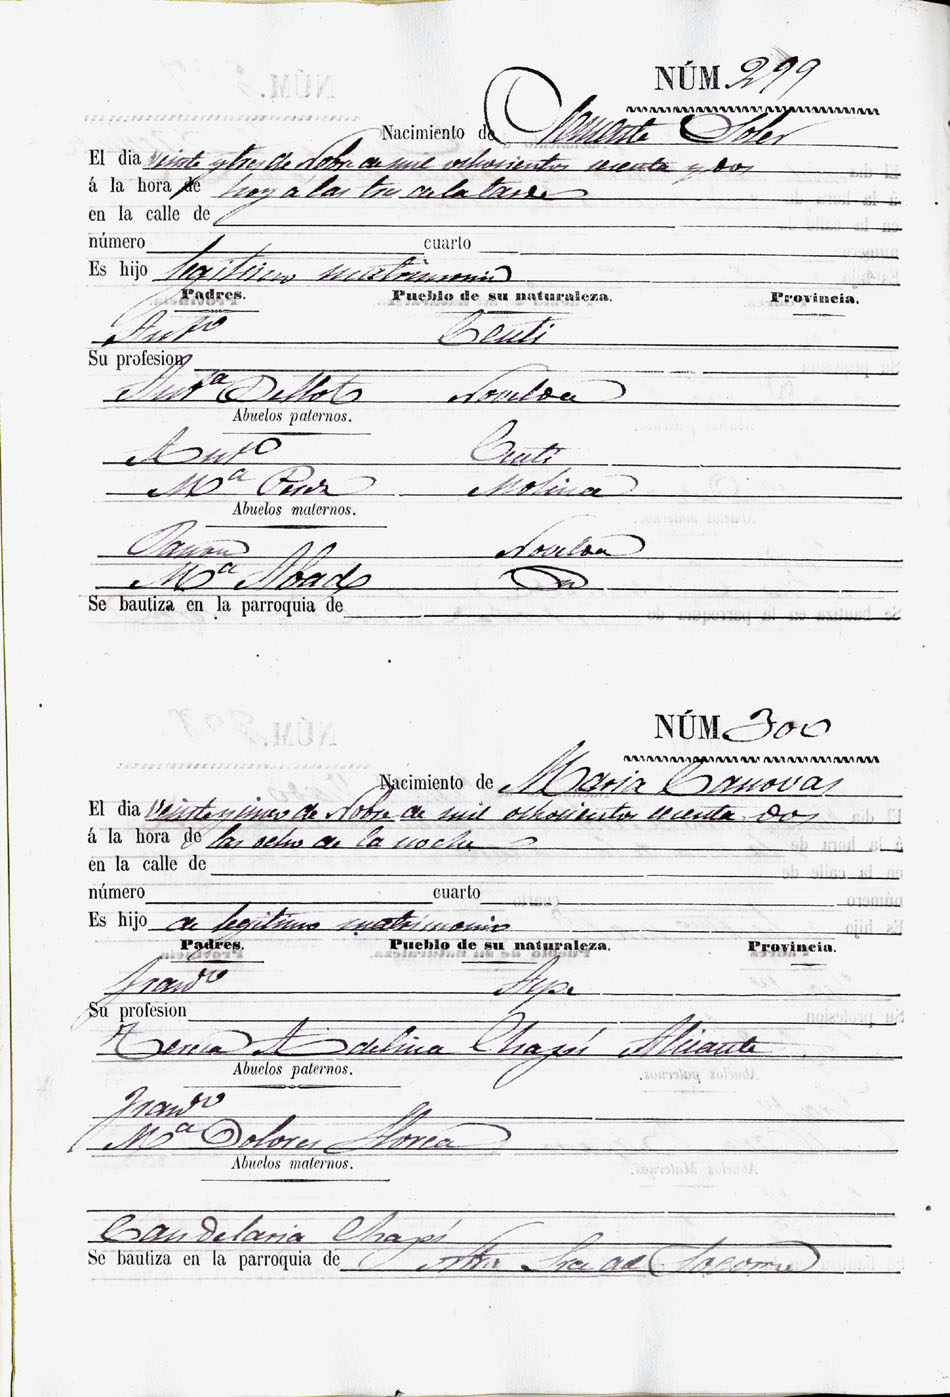 NÚM. 299
Nacimiento de Clemente Soler
El dia veinte y tres de Nobre de mil ochocientos secenta y dos
á la hora de hoy á las tres de la tarde
en la calle de
número cuarto
Es hijo legitimo matrimonio
Padres. Pueblo de su naturaleza. Provincia.
Antº Ceuti
Su profesion
Antª Dellot Novelda
Abuelos paternos.
Antº Ceuti
Mª Perez Molina
Abuelos maternos.
Ramon Novelda
Mª Abad
Se bautiza en la parroquia de
NÚM. 300
Nacimiento de Maria Canovas
El dia veinte y cinco de Nobre de mil ochocientos secenta dos
á la hora de las ocho de la noche
en la calle de
número cuarto
Es hijo de legitimo matrimonio
Padres. Pueblo de su naturaleza. Provincia.
Francº Aspe
Su profesion
Teresa Adelina Chapi Alicante
Abuelos paternos.
Francº
Mª Dolores Llorca
Abuelos maternos.
Candelaria Chapi
Se bautiza en la parroquia de Ntra Sra del Socorro